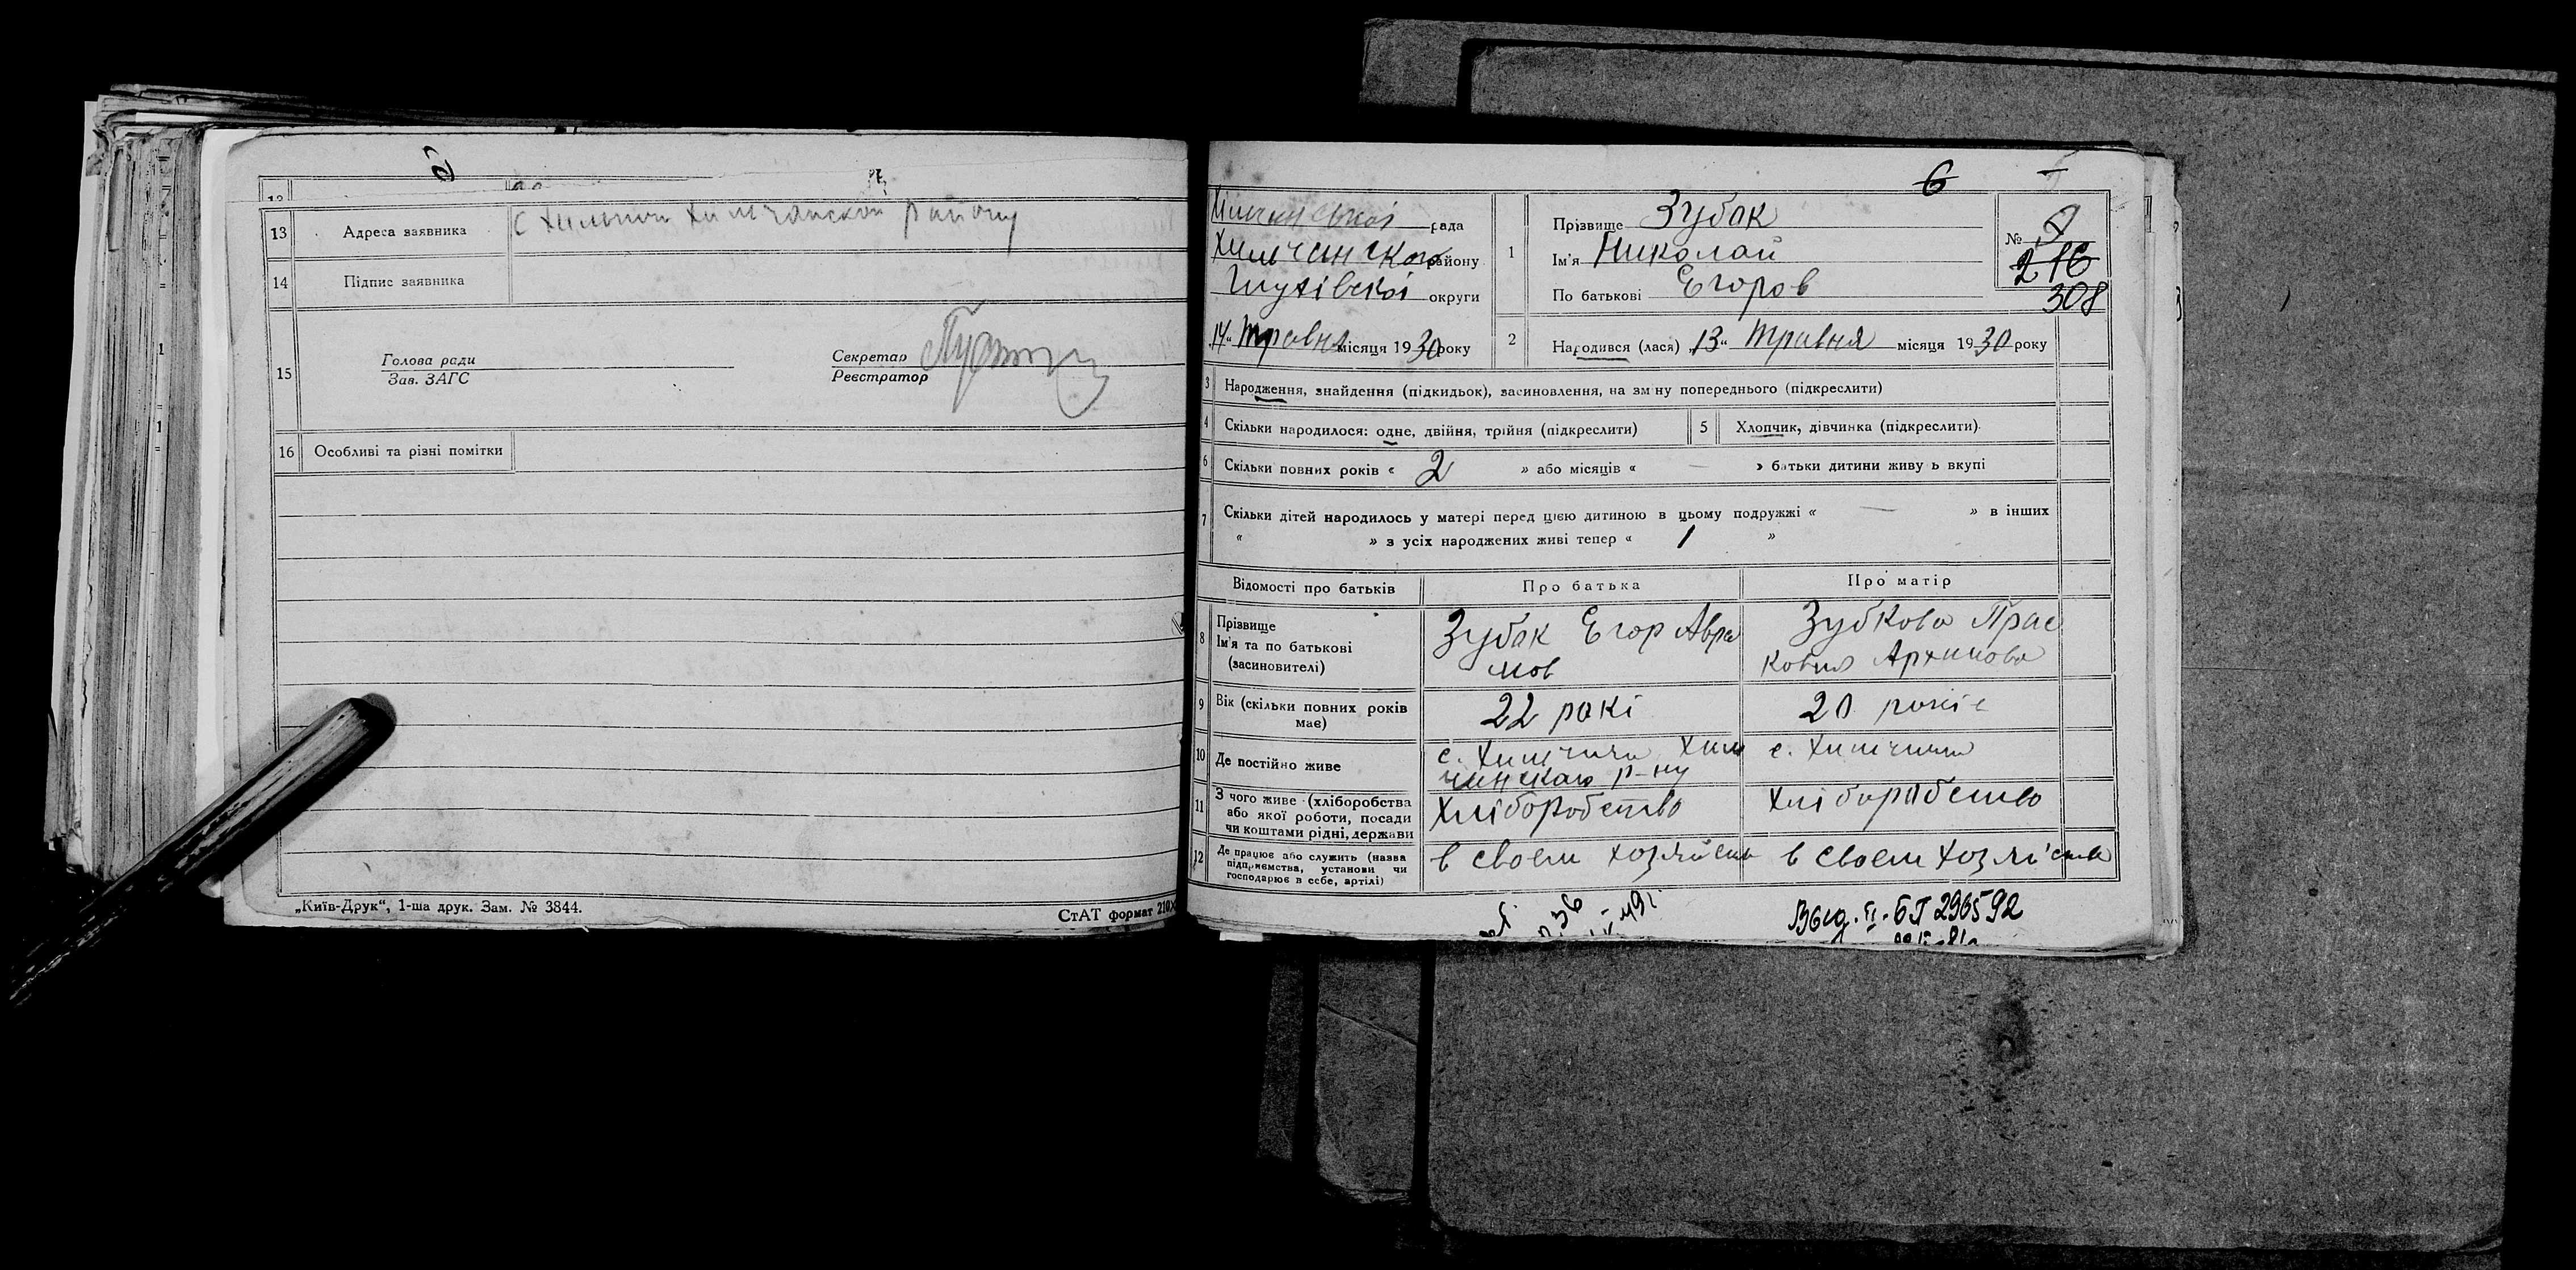 13 Адреса заявника С Хильчичи Хильчанской району
14 Підпис заявника
15 Голова ради
Зав. ЗАГС
Секретар
Реєстратор
16 Особливі та різні помітки
„Київ-Друк“, 1-ша друк. Зам. № 3844.
СтАТ формат 210×
6
рада
Хильчанского району
Глухівскої округи
„14“ Травня місяця 1930 року
1 Прізвище Зубак
Ім'я Николай
По батькові Егоров
№
216
308
2 Народився (лася) „13“ Травня місяця 1930 року
3 Народження, знайдення (підкидьок), засиновлення, на зміну попереднього (підкреслити)
4 Скільки народилося: одне, двійня, трійня (підкреслити) 5 Хлопчик, дівчинка (підкреслити)
6 Скільки повних років « 2 » або місяців « — » батьки дитини живуть вкупі
7 Скільки дітей народилось у матері перед цією дитиною в цьому подружжі « — » в інших
« » з усіх народжених живі тепер « 1 »
Відомості про батьків Про батька Про матір
8 Прізвище
Ім'я та по батькові
(засиновителі)
Зубак Егор Авра
мов
Зубкова Прас
ковия Архипова
9 Вік (скільки повних років
має)
22 ракі
20 рокі
10 Де постійно живе
с. Хильчичи Хиль
чанскаго р-ну
с. Хильчичи
11 З чого живе (хліборобства
або якої роботи, посади
чи коштами рідні, держави
Хліборобство
Хліборобство
12 Де працює або служить (назва
підприємства, установи чи
господарює в себе, артілі)
в своем хозяйстве
в своем хозяйстве
Выд. II-БП 296592